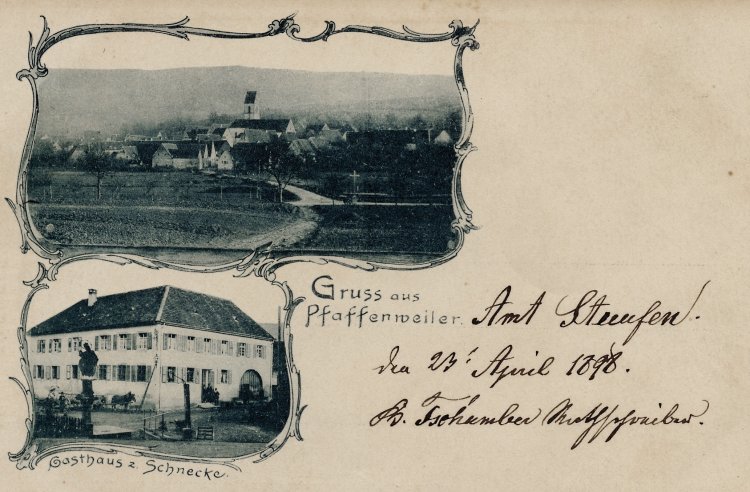 Gruss aus
Pfaffenweiler. Amt Staufen.
den 23t April 1898.
Tschamber Rathschreiber.
Gasthaus z. Schnecke.